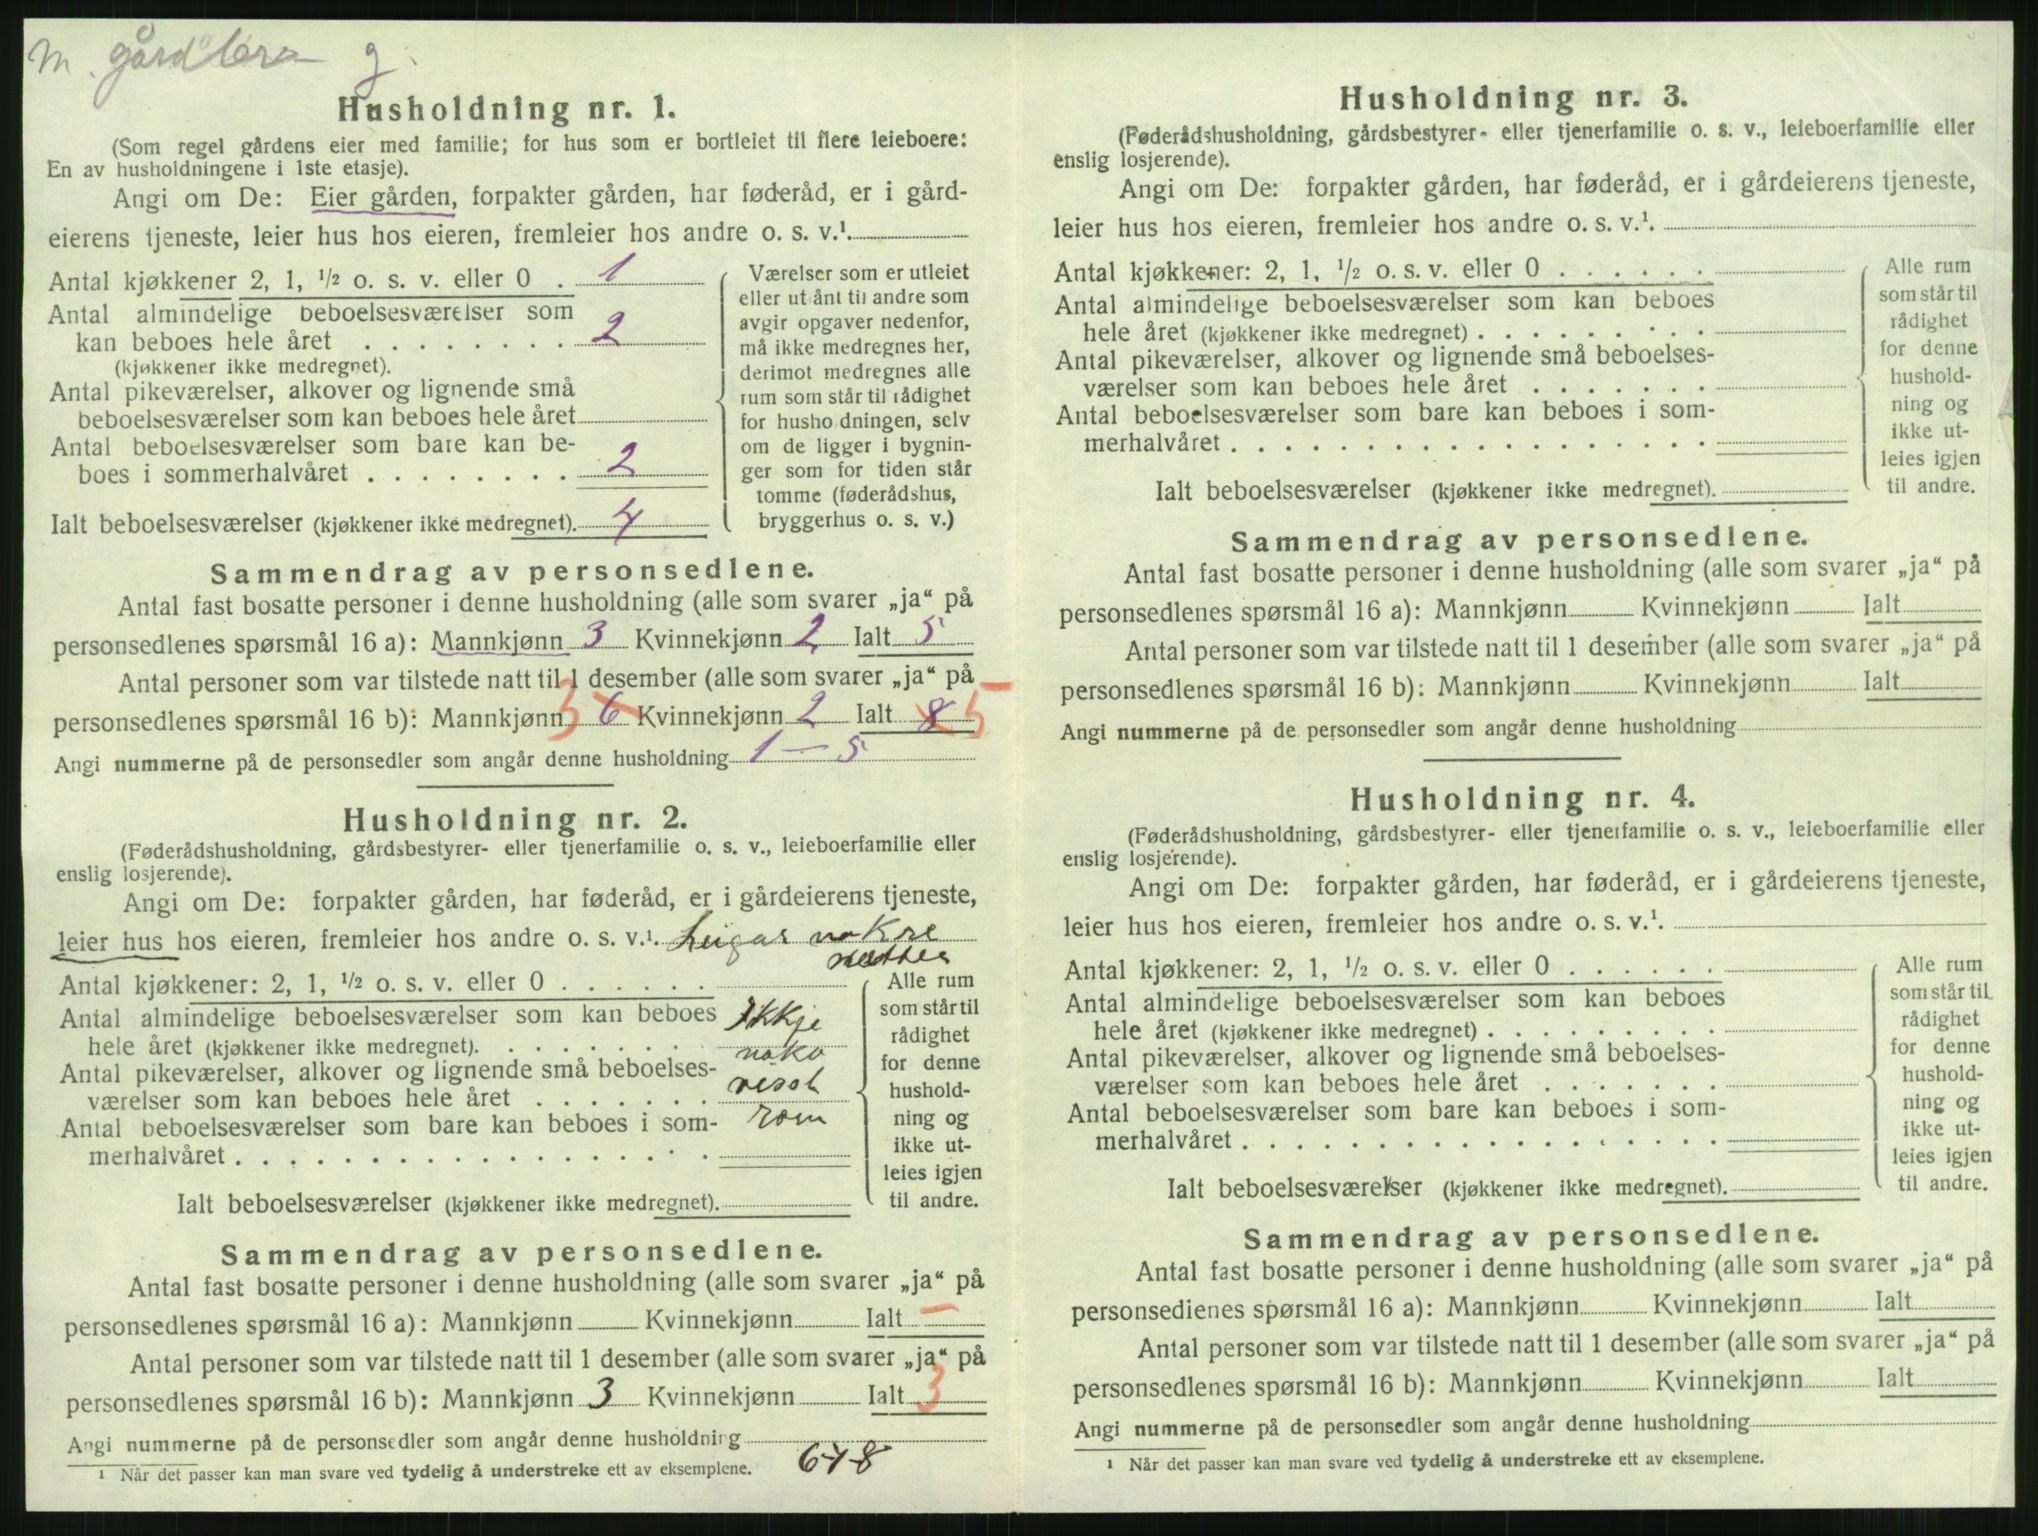 M. gårdbru g.
Husholdning nr. 1.
(Som regel gårdens eier med familie; for hus som er bortleiet til flere leieboere:
En av husholdningene i 1ste etasje).
Angi om De: Eier gården, forpakter gården, har føderåd, er i gård-
eierens tjeneste, leier hus hos eieren, fremleier hos andre o. s. v.¹.
Antal kjøkkener 2, 1, ½ o. s. v. eller 0 . 1
Antal almindelige beboelsesværelser som
kan beboes hele året . . . . . . . . 2
(kjøkkener ikke medregnet).
Antal pikeværelser, alkover og lignende små
beboelsesværelser som kan beboes hele året
Antal beboelsesværelser som bare kan be-
boes i sommerhalvåret . . . . . . . . 2
Ialt beboelsesværelser (kjøkkener ikke medregnet). 4
Værelser som er utleiet
eller ut ånt til andre som
avgir opgaver nedenfor,
må ikke medregnes her,
derimot medregnes alle
rum som står til rådighet
for husho dningen, selv
om de ligger i bygnin-
ger som for tiden står
tomme (føderådshus,
bryggerhus o. s. v.)
Sammendrag av personsedlene.
Antal fast bosatte personer i denne husholdning (alle som svarer „ja“ på
personsedlenes spørsmål 16 a): Mannkjønn 3 Kvinnekjønn 2 Ialt 5
Antal personer som var tilstede natt til 1 desember (alle som svarer „ja“ på
personsedlenes spørsmål 16 b): Mannkjønn 3 6 Kvinnekjønn 2 Ialt 8 5
Angi nummerne på de personsedler som angår denne husholdning 1 — 5
Husholdning nr. 2.
(Føderådshusholdning, gårdsbestyrer- eller tjenerfamilie o. s. v., leieboerfamilie eller
enslig losjerende).
Angi om De: forpakter gården, har føderåd, er i gårdeierens tjeneste,
leier hus hos eieren, fremleier hos andre o. s. v.¹. Ligas nokre
nætter
Antal kjøkkener: 2, 1, ½ o. s. v. eller 0 . . . . . .
Antal almindelige beboelsesværelser som kan beboes Ikkje
hele året (kjøkkener ikke medregnet). . . . . . . . . noko
Antal pikeværelser, alkover og lignende små beboelses- visst
værelser som kan beboes hele året . . . . . . .
Antal beboelsesværelser som bare kan beboes i som- rom
merhalvåret . . . . . . . . . . . . . . . . . .
Ialt beboelsesværelser (kjøkkener ikke medregnet).
Alle rum
som står til
rådighet
for denne
hushold-
ning og
ikke ut-
leies igjen
til andre.
Sammendrag av personsedlene.
Antal fast bosatte personer i denne husholdning (alle som svarer „ja“ på
personsedlenes spørsmål 16 a): Mannkjønn Kvinnekjønn Ialt —
Antal personer som var tilstede natt til 1 desember (alle som svarer „ja“ på
personsedlenes spørsmål 16 b): Mannkjønn 3 Kvinnekjønn Ialt 3
Angi nummerne på de personsedler som angår denne husholdning
6-7-8
¹ Når det passer kan man svare ved tydelig å understreke ett av eksemplene.
Husholdning nr. 3.
(Føderådshusholdning, gårdsbestyrer- eller tjenerfamilie o. s. v., leieboerfamilie eller
enslig losjerende).
Angi om De: forpakter gården, har føderåd, er i gårdeierens tjeneste,
leier hus hos eieren, fremleier hos andre o. s. v.¹.
Antal kjøkkener: 2, 1, ½ o. s. v. eller 0 . . . . . .
Antal almindelige beboelsesværelser som kan beboes
hele året (kjøkkener ikke medregnet) . . . . . . . . .
Antal pikeværelser, alkover og lignende små beboelses-
værelser som kan beboes hele året . . . . . . .
Antal beboelsesværelser som bare kan beboes i som-
merhalvåret . . . . . . . . . . . . . . . . . .
Ialt beboelsesværelser (kjøkkener ikke medregnet).
Alle rum
som står til
rådighet
for denne
hushold-
ning og
ikke ut-
leies igjen
til andre.
Sammendrag av personsedlene.
Antal fast bosatte personer i denne husholdning (alle som svarer „ja“ på
personsedlenes spørsmål 16 a): Mannkjønn Kvinnekjønn Ialt
Antal personer som var tilstede natt til 1 desember (alle som svarer „ja“ på
personsedlenes spørsmål 16 b): Mannkjønn Kvinnekjønn Ialt
Angi nummerne på de personsedler som angår denne husholdning
Husholdning nr. 4.
(Føderådshusholdning, gårdsbestyrer- eller tjenerfamilie o. s. v., leieboerfamilie eller
enslig losjerende).
Angi om De: forpakter gården, har føderåd, er i gårdeierens tjeneste,
leier hus hos eieren, fremleier hos andre o. s. v.¹.
Antal kjøkkener: 2, 1, ½ o. s. v. eller 0 . . . . . .
Antal almindelige beboelsesværelser som kan beboes
hele året (kjøkkener ikke medregnet) . . . . . . . . .
Antal pikeværelser, alkover og lignende små beboelses-
værelser som kan beboes hele året . . . . . . .
Antal beboelsesværelser som bare kan beboes i som-
merhalvåret . . . . . . . . . . . . . . . . . .
Ialt beboelsesværelser (kjøkkener ikke medregnet).
Alle rum
som står til
rådighet
for denne
hushold-
ning og
ikke ut-
leies igjen
til andre.
Sammendrag av personsedlene.
Antal fast bosatte personer i denne husholdning (alle som svarer „ja“ på
personsedlenes spørsmål 16 a): Mannkjønn Kvinnekjønn Ialt
Antal personer som var tilstede natt til 1 desember (alle som svarer „ja“ på
personsedlenes spørsmål 16 b): Mannkjønn Kvinnekjønn Ialt
Angi nummerne på de personsedler som angår denne husholdning
¹ Når det passer kan man svare ved tydelig å understreke ett av eksemplene.